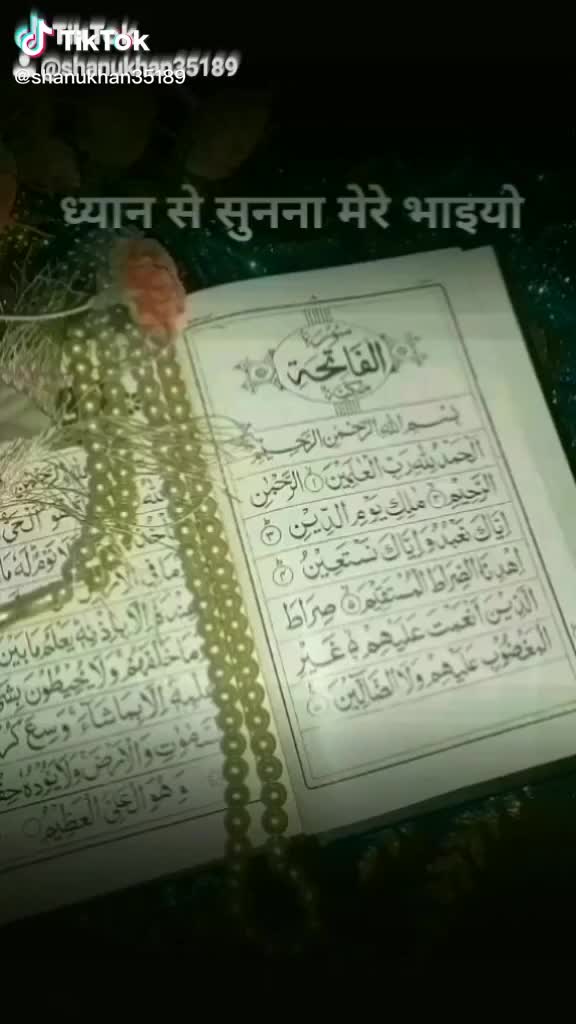 TikTok
@shanukhan35189
ध्यान से सुनना मेरे भाइयो
سورة
الفاتحة
مكية
بسم الله الرحمن الرحيم
الحمد لله رب العلمين ١ الرحمن
الرحيم ٢ ملك يوم الدين ٣
اياك نعبد واياك نستعين ٤
اهدنا الصراط المستقيم ٥ صراط
الذين انعمت عليهم ٦ غير
المغضوب عليهم ولا الضالين ٧
يعلم ما بين
ولا يحيطون بشي
الا بما شاء وسع كر
والارض ولا يؤده حف
وهو العلي العظيم